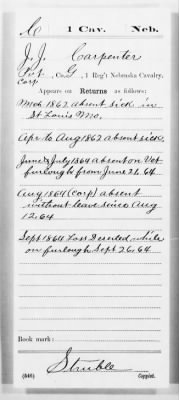 C 1 Cav. Neb.
J. J. Carpenter
Pvt, Co. G, 1 Reg't Nebraska Cavalry.
Corp
Appears on Returns as follows:
Mch 1862 absent sick in
St Louis Mo.
Apr to Aug 1862 absent sick.
June & July 1864 absent on Vet
furlough from June 21, 64
Aug 1864 (Corp) absent
without leave since Aug
12, 64
Sept 1864 Loss Deserted while
on furlough Sept 26, 64
Book mark:
Struble
(546) Copyist.